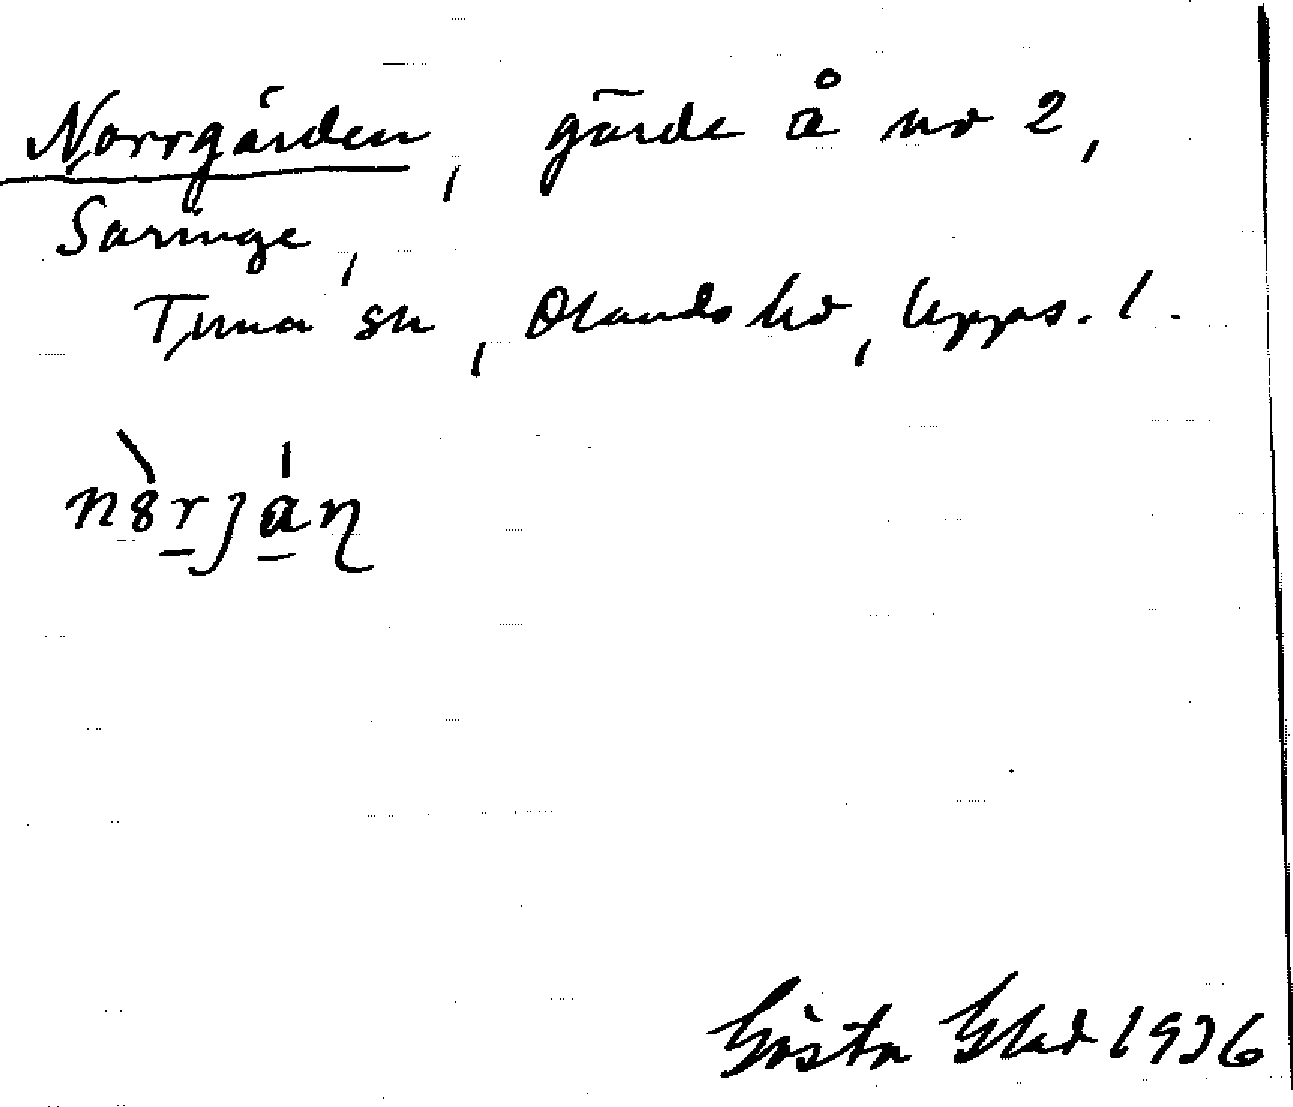 Norrgärden, gärde å nr 2,
Saringe,
Tuna sn, Olands hd, Upps. l.
Gösta Blad 1936